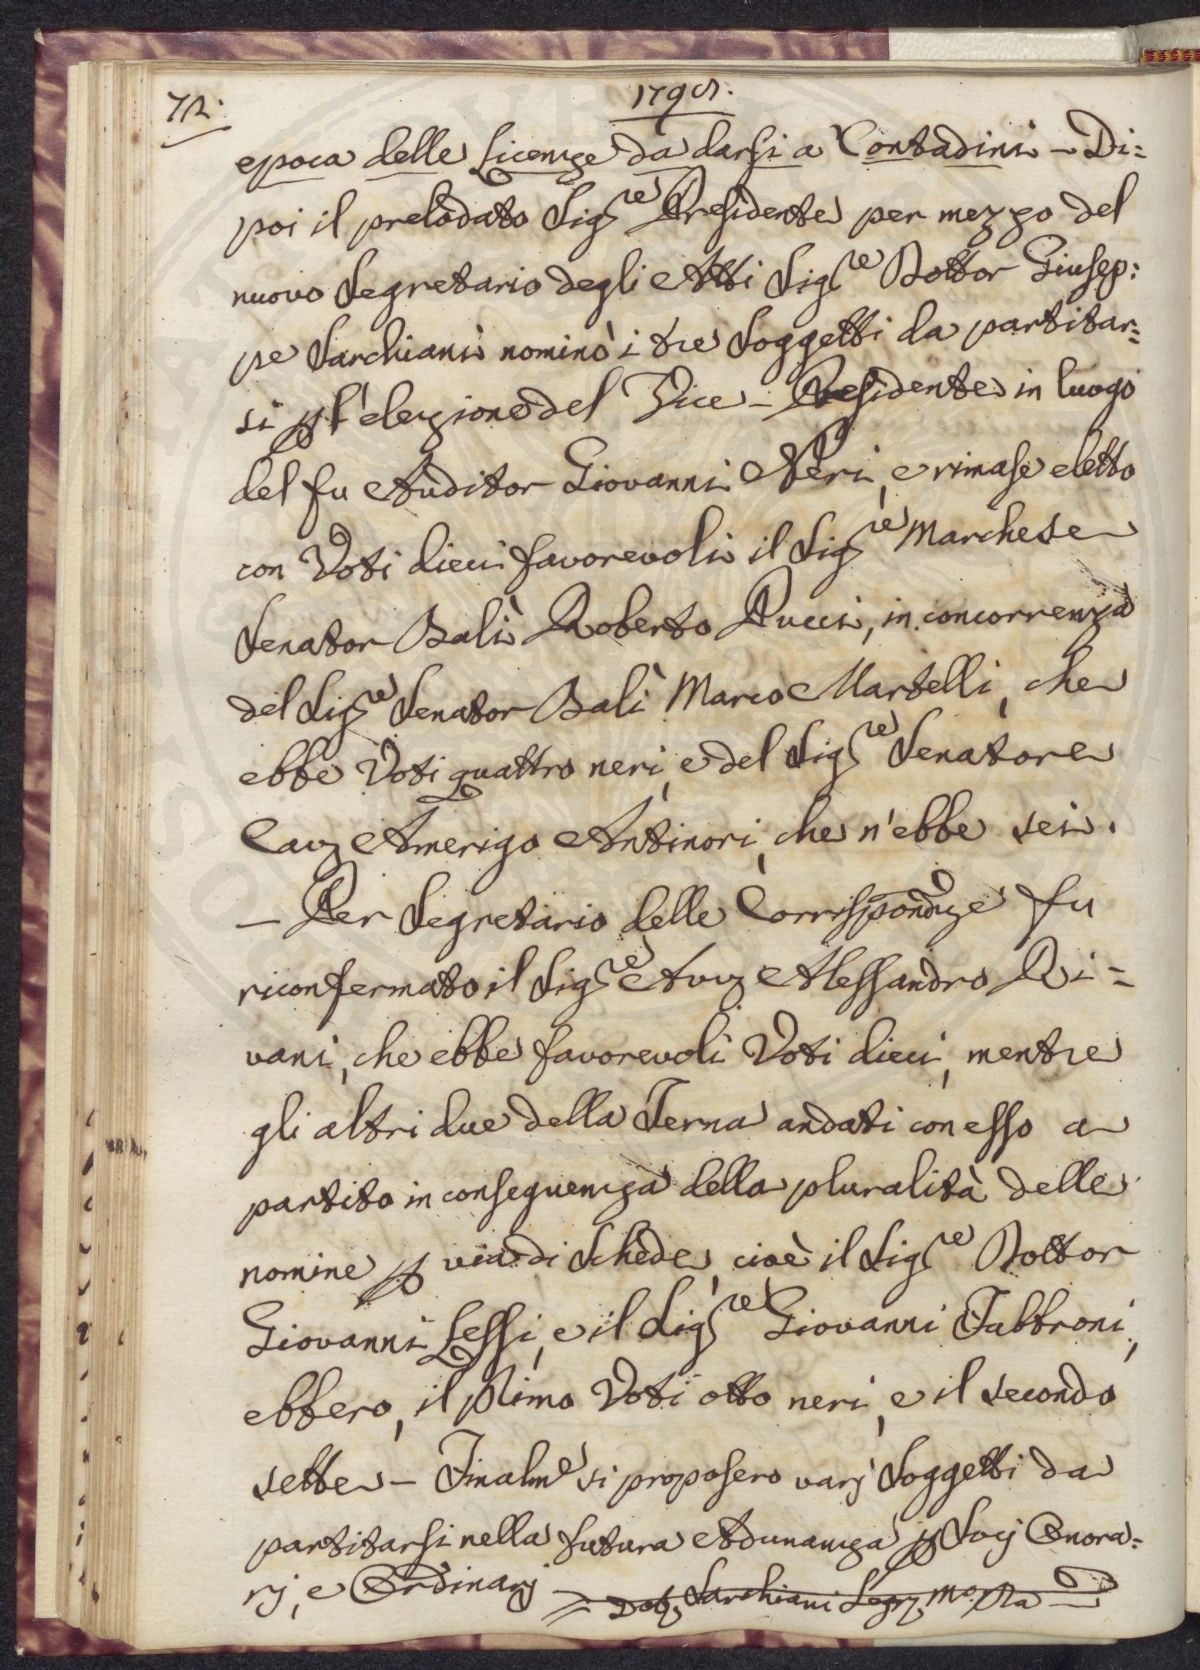 72.
epoca delle Licenze da darsi a Contadini - Di=
poi il prelodato Sig.re Presidente per mezzo del
nuovo Segretario degli Atti Sig.re Dottor Giusep:
pe Sarchiani nominò i tre Soggetti da partitar=
si p l'elezione del Vice-Presidente in luogo
del fu Auditor Giovanni Neri, e rimase eletto
con Voti dieci favorevoli il Sig.re Marchese
Senator Balì Roberto Pucci, in concorrenza
del Sig.re Senator Balì Marco Martelli, che
ebbe Voti quattro neri, e del Sig.re Senatore
Cav. Amerigo Antinori, che n'ebbe sei.
- Per Segretario delle Corrispondze fu
riconfermato il Sig.re Avv. Alessandro Ri=
vani, che ebbe favorevoli Voti dieci, mentre
gli altri due della Terna andati con esso a
partito in conseguenza della pluralità delle
nomine p via di Schede, cioè il Sig.re Dottor
Giovanni Lessi, e il Sig.re Giovanni Fabbroni,
ebbero, il Primo Voti otto neri, e il secondo
sette - Finalm.e si proposero varj Soggetti da
partitarsi nella futura Adunanza p Socj Onora=
rj, e Ordinarj Dot. Sarchiani Seg.